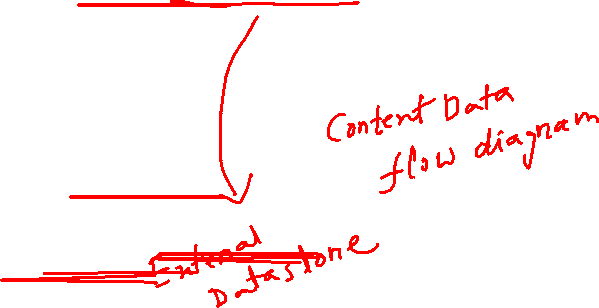 Content Data
flow diagram
External
Datastone